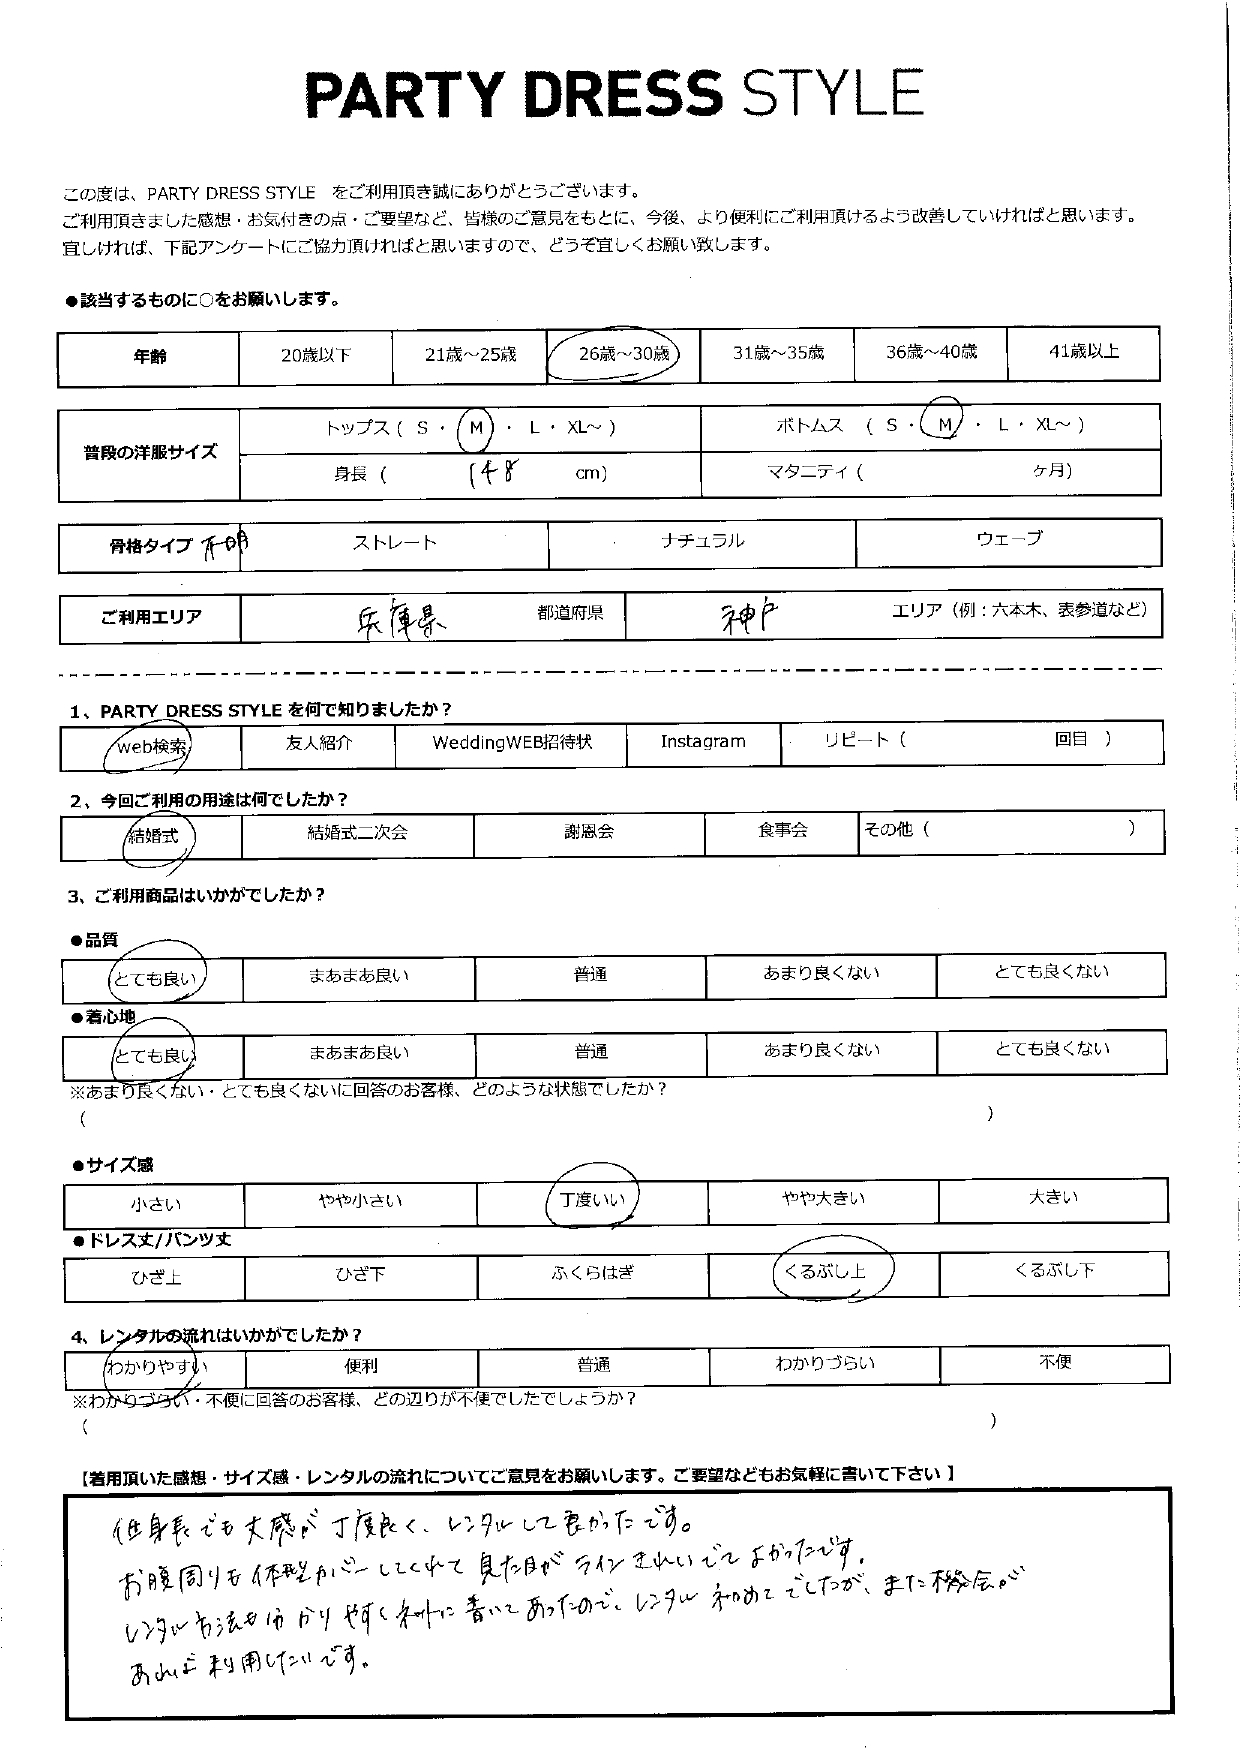 PARTY DRESS STYLE
この度は、PARTY DRESS STYLE をご利用頂き誠にありがとうございます。
ご利用頂きました感想・お気付きの点・ご要望など、皆様のご意見をもとに、今後、より便利にご利用頂けるよう改善していければと思います。
宜しければ、下記アンケートにご協力頂ければと思いますので、どうぞ宜しくお願い致します。
●該当するものに○をお願いします。
年齢 20歳以下 21歳～25歳 26歳～30歳 31歳～35歳 36歳～40歳 41歳以上
普段の洋服サイズ トップス（ S ・ M ・ L ・ XL～ ） ボトムス （ S ・ M ・ L ・ XL～ ）
身長（ 148 cm） マタニティ（ ヶ月）
骨格タイプ 不明 ストレート ナチュラル ウェーブ
ご利用エリア 兵庫県 都道府県 神戸 エリア（例：六本木、表参道など）
1、PARTY DRESS STYLE を何で知りましたか？
web検索 友人紹介 WeddingWEB招待状 Instagram リピート（ 回目 ）
2、今回ご利用の用途は何でしたか？
結婚式 結婚式二次会 謝恩会 食事会 その他（ ）
3、ご利用商品はいかがでしたか？
●品質
とても良い まあまあ良い 普通 あまり良くない とても良くない
●着心地
とても良い まあまあ良い 普通 あまり良くない とても良くない
※あまり良くない・とても良くないに回答のお客様、どのような状態でしたか？
（ ）
●サイズ感
小さい やや小さい 丁度いい やや大きい 大きい
●ドレス丈/パンツ丈
ひざ上 ひざ下 ふくらはぎ くるぶし上 くるぶし下
4、レンタルの流れはいかがでしたか？
わかりやすい 便利 普通 わかりづらい 不便
※わかりづらい・不便に回答のお客様、どの辺りが不便でしたでしょうか？
（ ）
【着用頂いた感想・サイズ感・レンタルの流れについてご意見をお願いします。ご要望などもお気軽に書いて下さい 】
低身長でも丈感が丁度良く、レンタルして良かったです。
お腹周りも体型カバーしてくれて見た目がラインきれいでてよかったです。
レンタル方法も分かりやすくネットに書いてあったので、レンタル初めてでしたが、また機会が
あれば利用したいです。